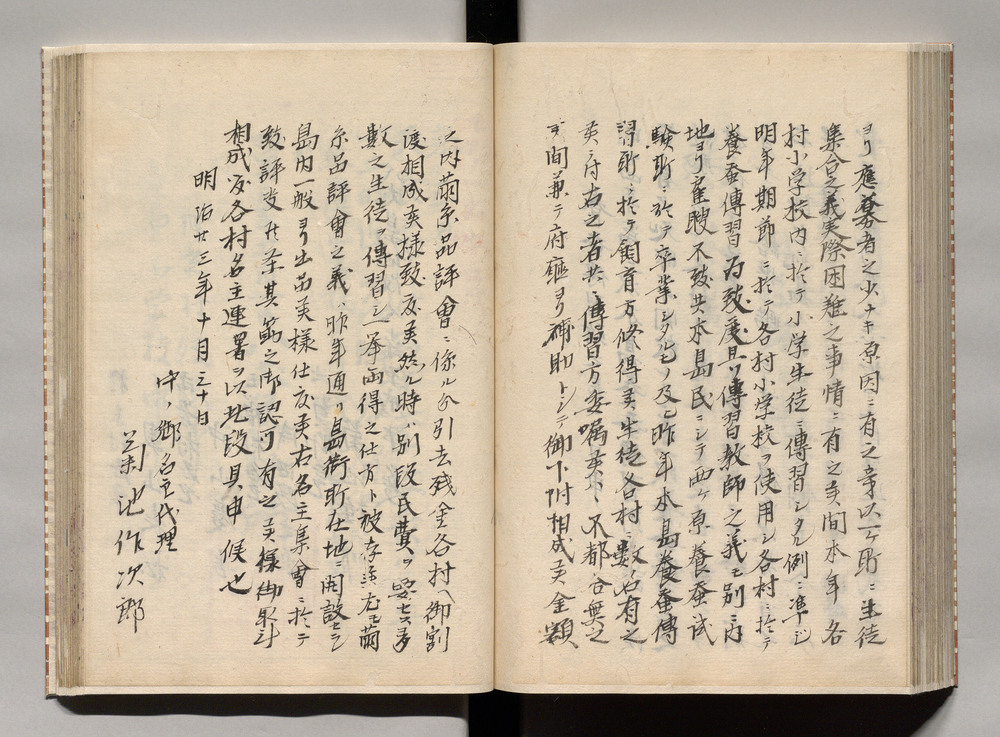 ヨリ應募者之少ナキ原因ニ有之章以一ヶ所ニ生徒
集合之義実際困難之事情ニ有之候間本年各
村小学校内ニ於テ小学生徒ニ傳習シタル例ニ準シ
明年期節ニ於テ各村小学校ヲ使用シ各村ニ於テ
養蚕傳習為致度且ツ傳習教師之義モ別ニ内
地ヨリ雇聘不致共本島民ニシテ西ヶ原養蚕試
験所ニ於テ卒業シタルモノ及ヒ昨年本島養蚕傳
習所ニ於テ飼育方修得候生徒各村ニ数名有之
候付右之者共ニ傳習方委嘱候ハヽ不都合無之
候間兼テ府廰ヨリ補助トシテ御下附相成候金額
之内繭糸品評會ニ係ル分引去残金各村ヘ御割
渡相成候様致度候然ル時ハ別段民費ヲ要セス多
數之生徒ヲ傳習シ一挙両得之仕方ト被存候尤モ繭
糸品評會之義ハ昨年通リ島衙所在地ニ開設シ
島内一般ヨリ出品候様仕度候右名主集會ニ於テ
致評決候条其筋之御認可有之候様御取計
相成度各村名主連署ヲ以此段具申候也
明治廿三年十月三十日
中ノ郷名主代理
菊池作次郎